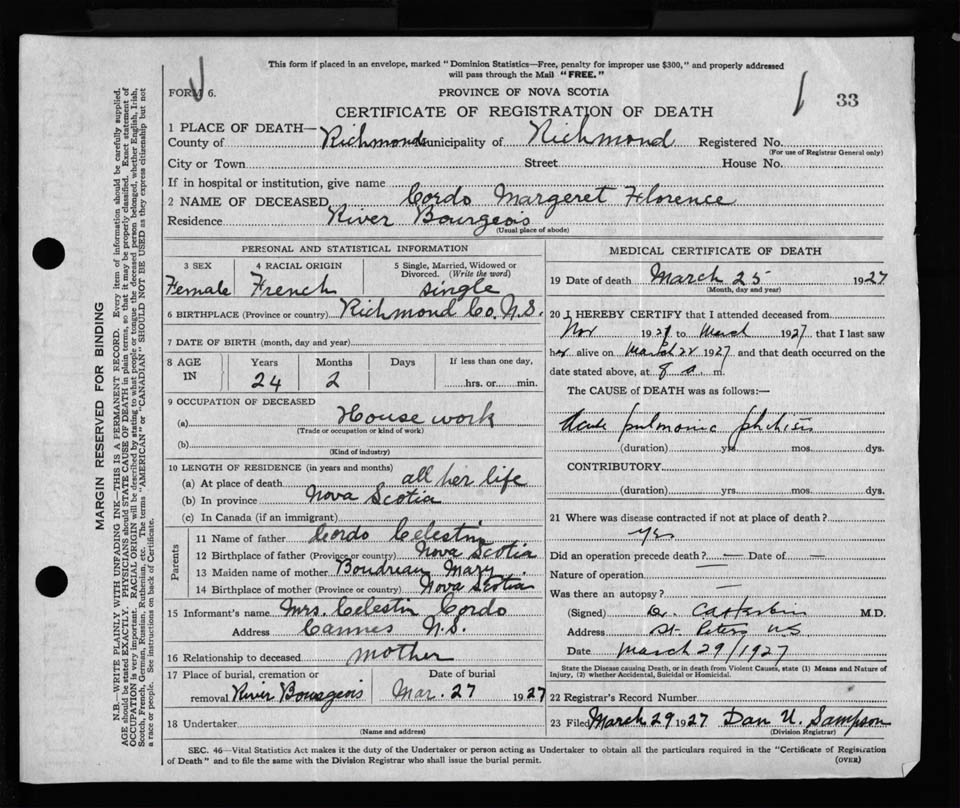 This form if placed in an envelope, marked "Dominion Statistics—Free, penalty for improper use $300," and properly addressed
will pass through the Mail "FREE."
FORM 6.
PROVINCE OF NOVA SCOTIA
33
CERTIFICATE OF REGISTRATION OF DEATH
1 PLACE OF DEATH—
County of Richmond Municipality of Richmond Registered No.
(For use of Registrar General only)
City or Town Street House No.
If in hospital or institution, give name
2 NAME OF DECEASED Cordo Margaret Florence
Residence River Bourgeois
(Usual place of abode)
PERSONAL AND STATISTICAL INFORMATION
3 SEX 4 RACIAL ORIGIN 5 Single, Married, Widowed or
Divorced. (Write the word)
Female French single
6 BIRTHPLACE (Province or country) Richmond Co. N.S.
7 DATE OF BIRTH (month, day and year)
8 AGE Years Months Days If less than one day,
IN 24 2 hrs. or min.
9 OCCUPATION OF DECEASED
(a) House work
(Trade or occupation or kind of work)
(b)
(Kind of industry)
10 LENGTH OF RESIDENCE (in years and months)
(a) At place of death all her life
(b) In province Nova Scotia
(c) In Canada (if an immigrant)
Parents
11 Name of father Cordo Celestin
12 Birthplace of father (Province or country) Nova Scotia
13 Maiden name of mother Boudreau Mary
14 Birthplace of mother (Province or country) Nova Scotia
15 Informant's name Mrs. Celestin Cordo
Address Cannes N.S.
16 Relationship to deceased mother
17 Place of burial, cremation or Date of burial
removal River Bourgeois Mar. 27 1927
18 Undertaker
(Name and address)
MEDICAL CERTIFICATE OF DEATH
19 Date of death March 25 1927
(Month, day and year)
20 I HEREBY CERTIFY that I attended deceased from
Nov 192 to March 1927, that I last saw
her alive on March 1927 and that death occurred on
date stated above, at 8 a m.
The CAUSE OF DEATH was as follows:—
Acute pulmonic phthisis
(duration) yrs. mos. dys.
CONTRIBUTORY
(duration) yrs. mos. dys.
21 Where was disease contracted if not at place of death?
yes
Did an operation precede death? — Date of —
Nature of operation —
Was there an autopsy? —
(Signed) M.D.
Address St. Peters N S
Date March 29/1927
State the Disease causing Death, or in death from Violent Causes, state (1) Means and Nature of
Injury, (2) whether Accidental, Suicidal or Homicidal.
22 Registrar's Record Number
23 Filed March 29 1927 Dan U. Sampson
(Division Registrar)
SEC. 46—Vital Statistics Act makes it the duty of the Undertaker or person acting as Undertaker to obtain all the particulars required in the "Certificate of Registration
of Death" and to file the same with the Division Registrar who shall issue the burial permit.
(OVER)
MARGIN RESERVED FOR BINDING
N.B.—WRITE PLAINLY WITH UNFADING INK—THIS IS A PERMANENT RECORD. Every item of information should be carefully supplied.
AGE should be stated EXACTLY. PHYSICIANS should STATE CAUSE OF DEATH in plain terms, so that it may be properly classified. Exact statement of
OCCUPATION is very important. RACIAL ORIGIN will be described by stating to what people or tongue the deceased person belonged, whether English, Irish,
Scotch, French, German, Russian, Ruthenian, etc. The terms "AMERICAN" or "CANADIAN" SHOULD NOT BE USED as they express citizenship but not
a race or people. See instructions on back of Certificate.